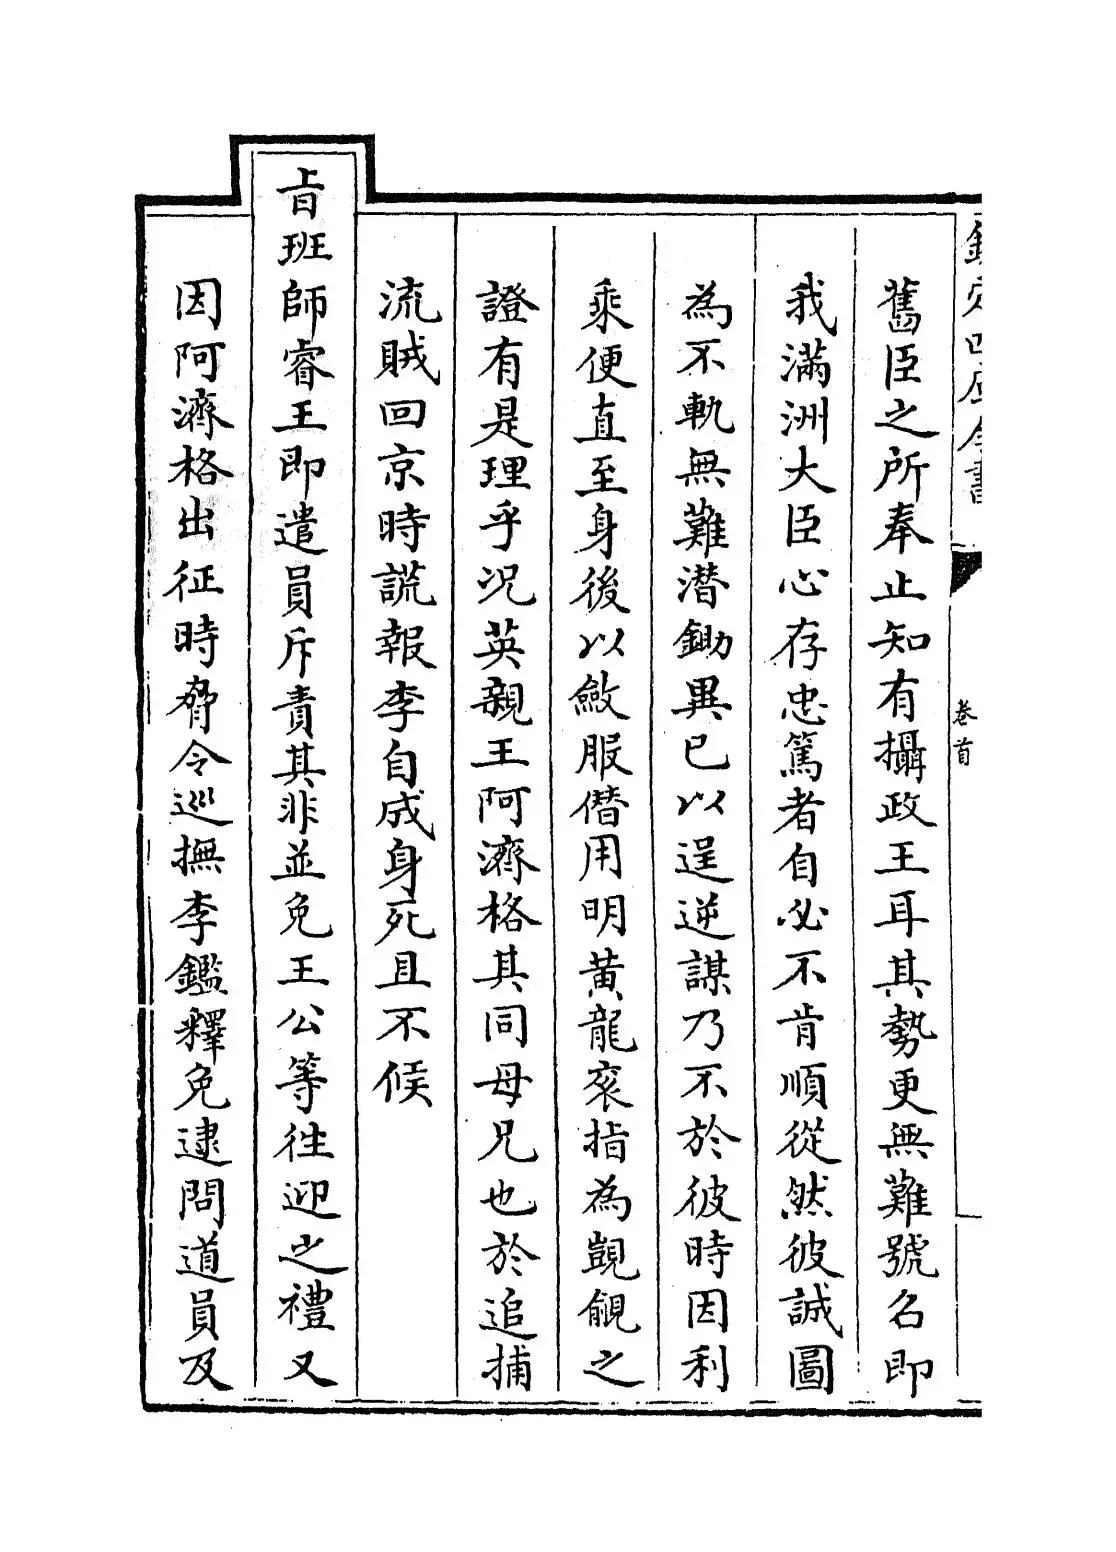 欽定四庫全書
卷首
舊臣之所奉止知有攝政王耳其勢更無難號名即
我滿洲大臣心存忠篤者自必不肯順從然彼誠圖
為不軌無難潜鋤異已以逞逆謀乃不於彼時因利
乘便直至身後以斂服僭用明黃龍衮指為覬覦之
證有是理乎况英親王阿濟格其同母兄也於追捕
流賊回京時謊報李自成身死且不候
㫖班師睿王即遣員斥責其非並免王公等往迎之禮又
因阿濟格出征時脅令巡撫李鑑釋免逮問道員及